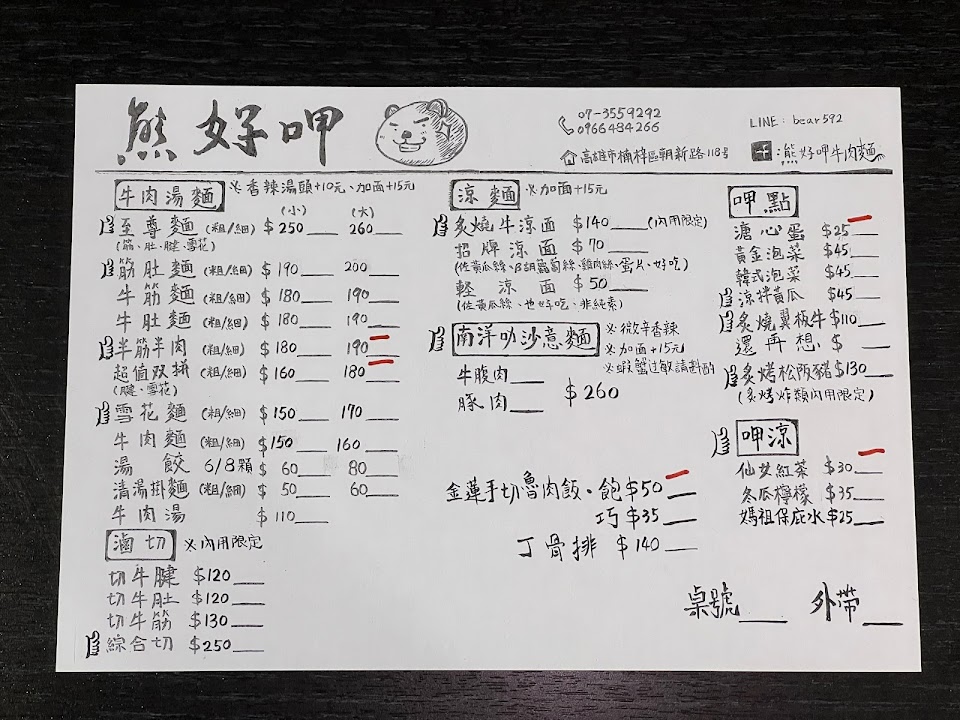 熊好呷
07-3559292
0966484266
高雄市楠梓區朝新路118号
LINE: bear592
f :熊好呷牛肉麵
牛肉湯麵 ※香辣湯頭+10元、加面+15元
(小) (大)
至尊麵 (粗/細) $250 260
(筋、肚、腱、雪花)
筋肚麵 (粗/細) $190 200
牛筋麵 (粗/細) $180 190
牛肚麵 (粗/細) $180 190
半筋半肉 (粗/細) $180 190
超值双拼 (粗/細) $160 180
(腱、雪花)
雪花麵 (粗/細) $150 170
牛肉麵 (粗/細) $150 160
湯餃 6/8顆 $60 80
清湯掛麵 (粗/細) $50 60
牛肉湯 $110
滷切 ※內用限定
切牛腱 $120
切牛肚 $120
切牛筋 $130
綜合切 $250
涼麵 ※加面+15元
炙燒牛涼面 $140 (內用限定)
招牌涼面 $70
(佐黃瓜絲、胡蘿蔔絲、雞肉絲、蛋片、好吃)
輕涼面 $50
(佐黃瓜絲、也好吃、非純素)
南洋叻沙意麵 ※微辛香辣
※加面+15元
※蝦蟹过敏請斟酌
牛腹肉
豚肉
$260
金蓮手切魯肉飯。飽$50
巧$35
丁骨排 $140
呷點
溏心蛋 $25
黃金泡菜 $45
韓式泡菜 $45
涼拌黃瓜 $45
炙燒翼板牛 $110
還再想 $
炙烤松阪豬 $130
(炙烤炸類內用限定)
呷涼
仙女紅茶 $30
冬瓜檸檬 $35
媽祖保庇水 $25
桌號
外帶